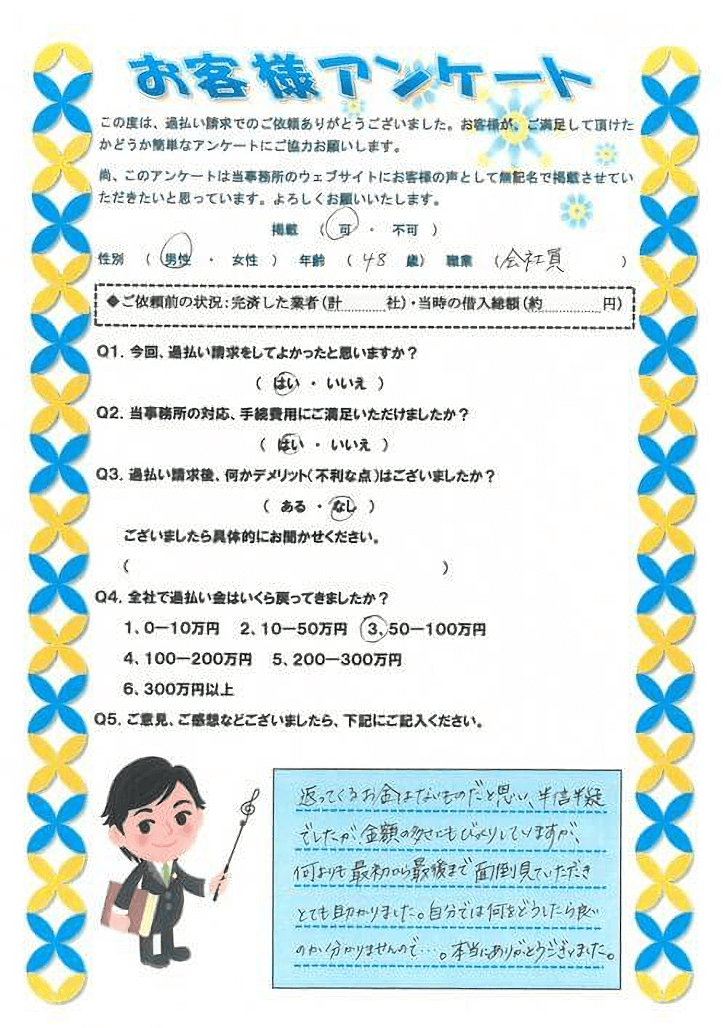 お客様アンケート
この度は、過払い請求でのご依頼ありがとうございました。お客様が、ご満足して頂けた
かどうか簡単なアンケートにご協力お願いします。
尚、このアンケートは当事務所のウェブサイトにお客様の声として無記名で掲載させてい
ただきたいと思っています。よろしくお願いいたします。
掲載 ( 可 ・ 不可 )
性別 ( 男性 ・ 女性 ) 年齢 ( 48 歳) 職業 (会社員 )
◆ご依頼前の状況：完済した業者(計………社)・当時の借入総額(約……………円)
Q1. 今回、過払い請求をしてよかったと思いますか？
( はい ・ いいえ )
Q2. 当事務所の対応、手続費用にご満足いただけましたか？
( はい ・ いいえ )
Q3. 過払い請求後、何かデメリット(不利な点)はございましたか？
( ある ・ なし )
ございましたら具体的にお聞かせください。
( )
Q4. 全社で過払い金はいくら戻ってきましたか？
1、0－10万円 2、10－50万円 3、50－100万円
4、100－200万円 5、200－300万円
6、300万円以上
Q5. ご意見、ご感想などございましたら、下記にご記入ください。
返ってくるお金はないものだと思い、半信半疑
でしたが、金額の多さにもびっくりしていますが、
何よりも最初から最後まで面倒見ていただき
とても助かりました。自分では何をどうしたら良い
のか分かりませんので…。本当にありがとうございました。